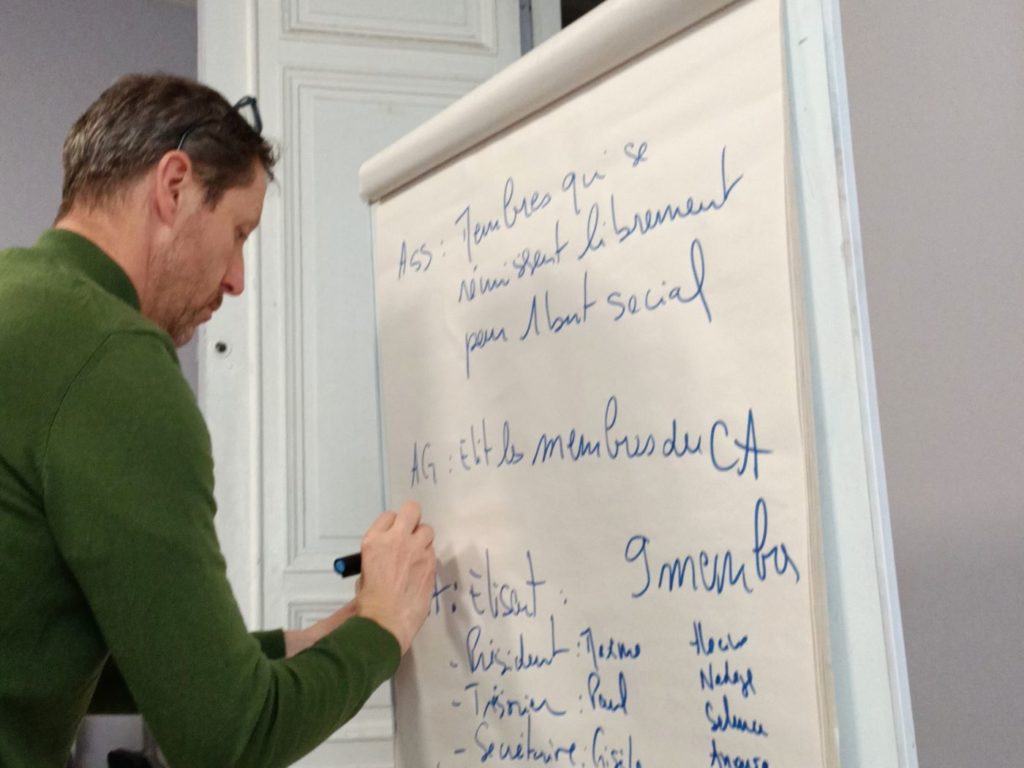 Ass : Membres qui se
réunissent librement
pour 1 but social
AG : Elit les membres du CA
9 membres
A : Elisent :
- Président :
- Trésorier : Paul
Nadege
- Secrétaire : Gisèle